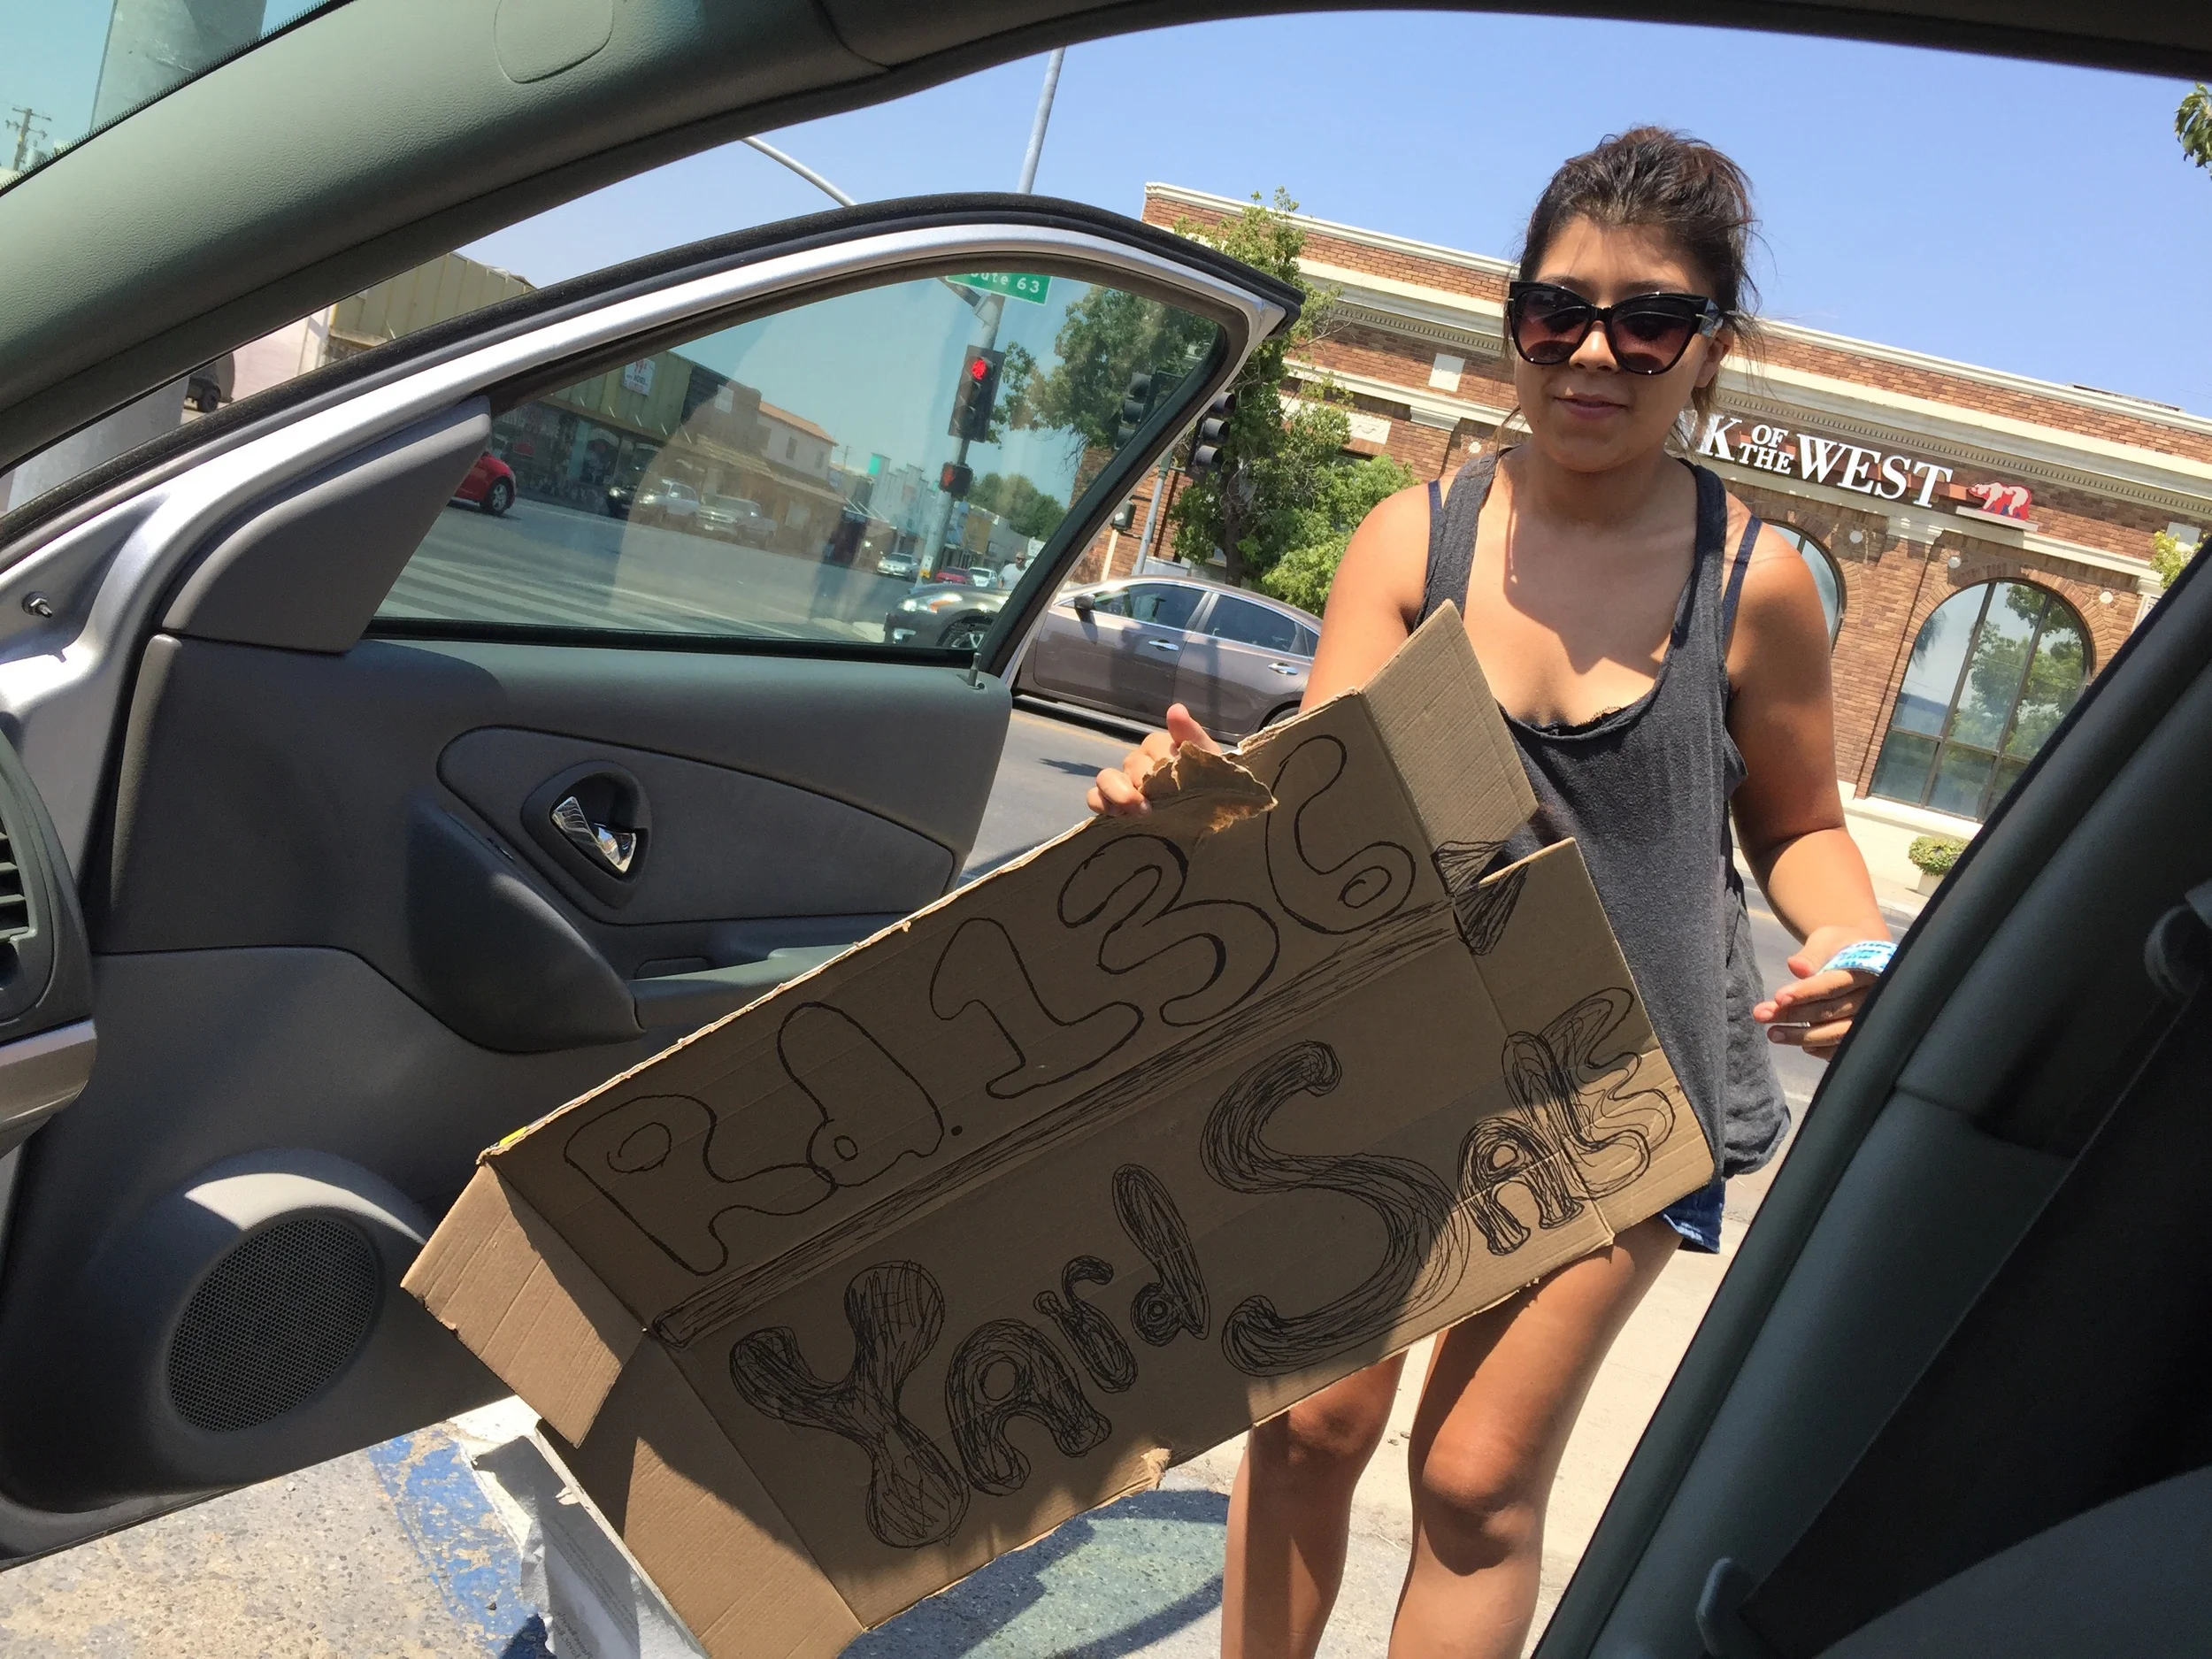 ute 63
K OF THE WEST
Rd. 136
Yard Sale